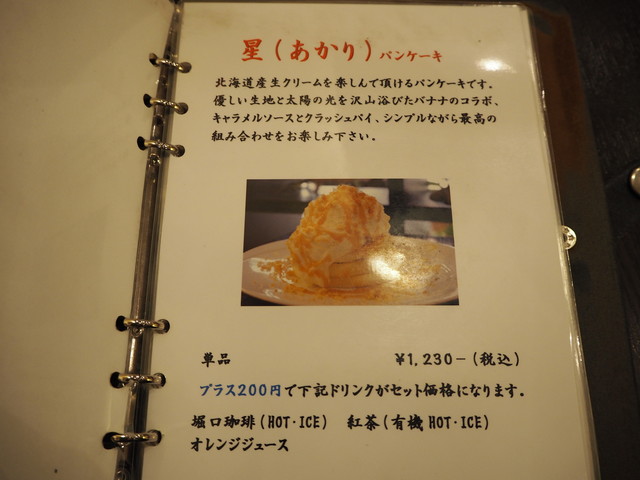 星(あかり)パンケーキ
北海道産生クリームを楽しんで頂けるパンケーキです。
優しい生地と太陽の光を沢山浴びたバナナのコラボ、
キャラメルソースとクラッシュパイ、シンプルながら最高の
組み合わせをお楽しみ下さい。
単品 ¥1,230-(税込)
プラス200円で下記ドリンクがセット価格になります。
堀口珈琲(HOT・ICE) 紅茶(有機HOT・ICE)
オレンジジュース